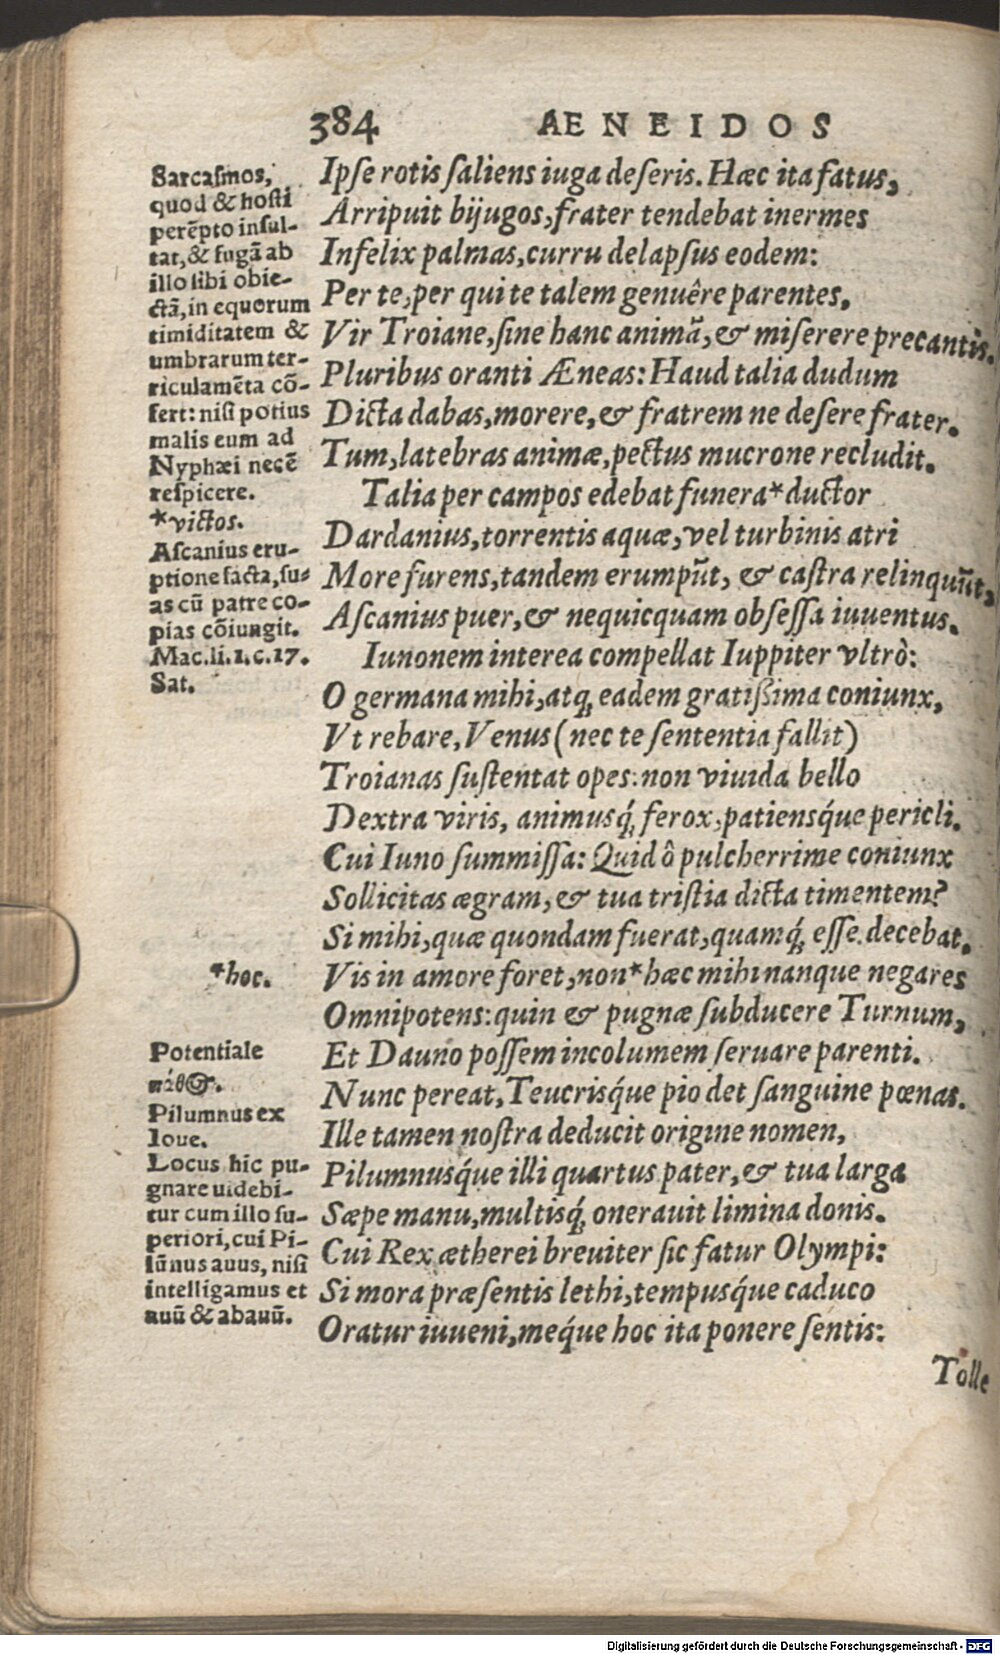 384 AENEIDOS
Sarcasmos,
quod & hosti
perẽpto insul-
tat, & fugã ab
illo sibi obie-
ctã, in equorum
timiditatem &
umbrarum ter-
riculamẽta cõ-
fert: nisi potius
malis eum ad
Nyphæi necẽ
respicere.
*victos.
Ascanius eru-
ptione facta, su-
as cũ patre co-
pias cõiungit.
Mac.li.1.c.17.
Sat.
*hoc.
Potentiale
πάθος.
Pilumnus ex
Ioue.
Locus hic pu-
gnare uidebi-
tur cum illo su-
periori, cui Pi-
lũnus auus, nisi
intelligamus et
auũ & abauũ.
Ipse rotis saliens iuga deseris. Hæc ita fatus,
Arripuit bijugos, frater tendebat inermes
Infelix palmas, curru delapsus eodem:
Per te, per qui te talem genuêre parentes,
Vir Troiane, sine hanc animã, & miserere precantis.
Pluribus oranti Æneas: Haud talia dudum
Dicta dabas, morere, & fratrem ne desere frater.
Tum, latebras animæ, pectus mucrone recludit.
Talia per campos edebat funera* ductor
Dardanius, torrentis aquæ, vel turbinis atri
More furens, tandem erumpũt, & castra relinquũt,
Ascanius puer, & nequicquam obsessa iuuentus.
Iunonem interea compellat Iuppiter vltrò:
O germana mihi, atq; eadem gratißima coniunx,
Vt rebare, Venus (nec te sententia fallit)
Troianas sustentat opes: non viuida bello
Dextra viris, animusq́; ferox, patiensq́ue pericli.
Cui Iuno summissa: Quid ô pulcherrime coniunx
Sollicitas ægram, & tua tristia dicta timentem?
Si mihi, quæ quondam fuerat, quamq́; esse decebat,
Vis in amore foret, non* hæc mihi nanque negares
Omnipotens: quin & pugnæ subducere Turnum,
Et Dauno possem incolumem seruare parenti.
Nunc pereat, Teucrisq́ue pio det sanguine pœnas.
Ille tamen nostra deducit origine nomen,
Pilumnusq́ue illi quartus pater, & tua larga
Sæpe manu, multisq́; onerauit limina donis.
Cui Rex ætherei breuiter sic fatur Olympi:
Si mora præsentis lethi, tempusq́ue caduco
Oratur iuueni, meq́ue hoc ita ponere sentis:
Tolle
Digitalisierung gefördert durch die Deutsche Forschungsgemeinschaft - DFG